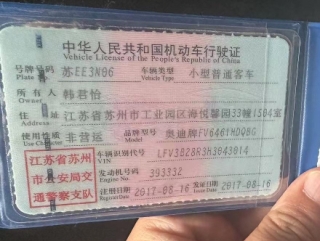 中华人民共和国机动车行驶证
Vehicle License of the People's Republic of China
号牌号码 苏EE3N06 车辆类型 小型普通客车
Plate No. Vehicle Type
所有人 韩君怡
Owner
住址 江苏省苏州市工业园区海悦馨园33幢1504室
Address
使用性质 非营运 品牌型号 奥迪牌FV6461HDQBG
Use Character Model
江苏省苏州 车辆识别代号 LFV3B28R3H3043014
VIN
市公安局交 发动机号码 393332
Engine No.
通警察支队 注册日期 2017-08-16 发证日期 2017-08-16
Register Date Issue Date